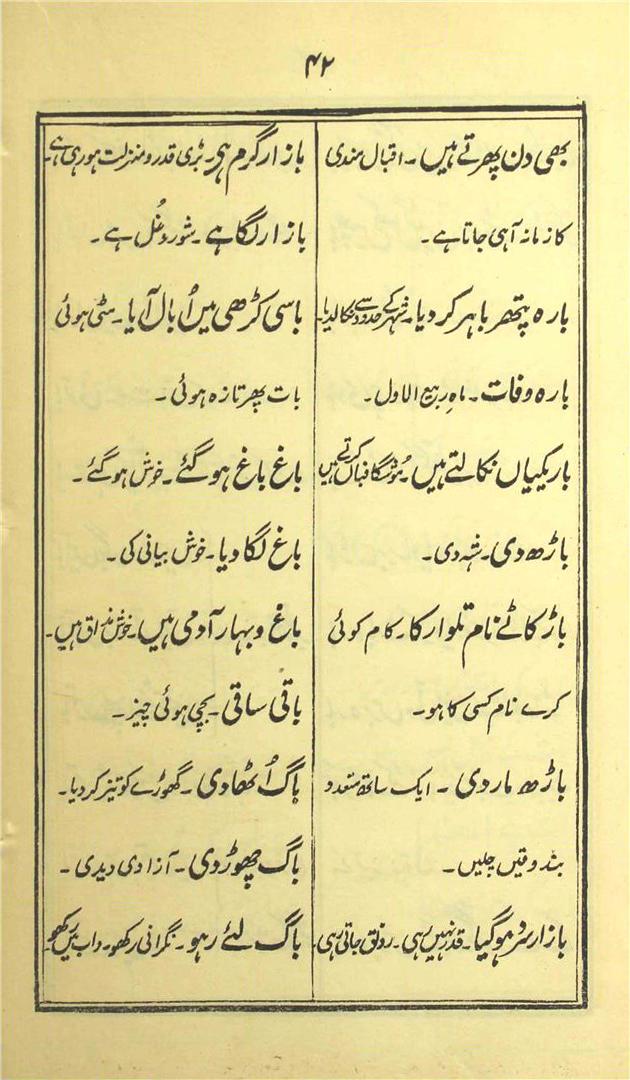 ۴۲
بھی دن پھرتے ہیں۔ اقبال مندی
کا زمانہ آہی جاتا ہے۔
بارہ پتھر باہر کر دیا۔ شہر کے حدود سے نکالدیا۔
بارہ وفات۔ ماہِ ربیع الاول۔
باریکیاں نکالتے ہیں۔ مُوشگافیاں کرتے ہیں
باڑھ دی۔ شہ دی۔
باڑ کاٹے نام تلوار کا۔ کام کوئی
کرے نام کسی کا ہو۔
باڑھ مار دی۔ ایک ساتھ متعدد
بندوقیں چلیں۔
بازار سرد ہو گیا۔ قدر نہیں رہی۔ رونق جاتی رہی۔
بازار گرم ہی۔ بڑی قدر و منزلت ہو رہی ہے۔
بازار لگا ہے۔ شور و غُل ہے۔
باسی کڑھی میں اُبال آیا۔ مٹی ہوئی
بات پھر تازہ ہوئی۔
باغ باغ ہو گئے۔ خوش ہو گئے۔
باغ لگا دیا۔ خوش بیانی کی۔
باغ و بہار آدمی ہیں۔ خوش مذاق ہیں۔
باقی ساقی۔ بچی ہوئی چیز۔
باگ اُٹھا دی۔ گھوڑے کو تیز کر دیا۔
باگ چھوڑ دی۔ آزادی دیدی۔
باگ لئے رہو۔ نگرانی رکھو۔ داب میں رکھو۔